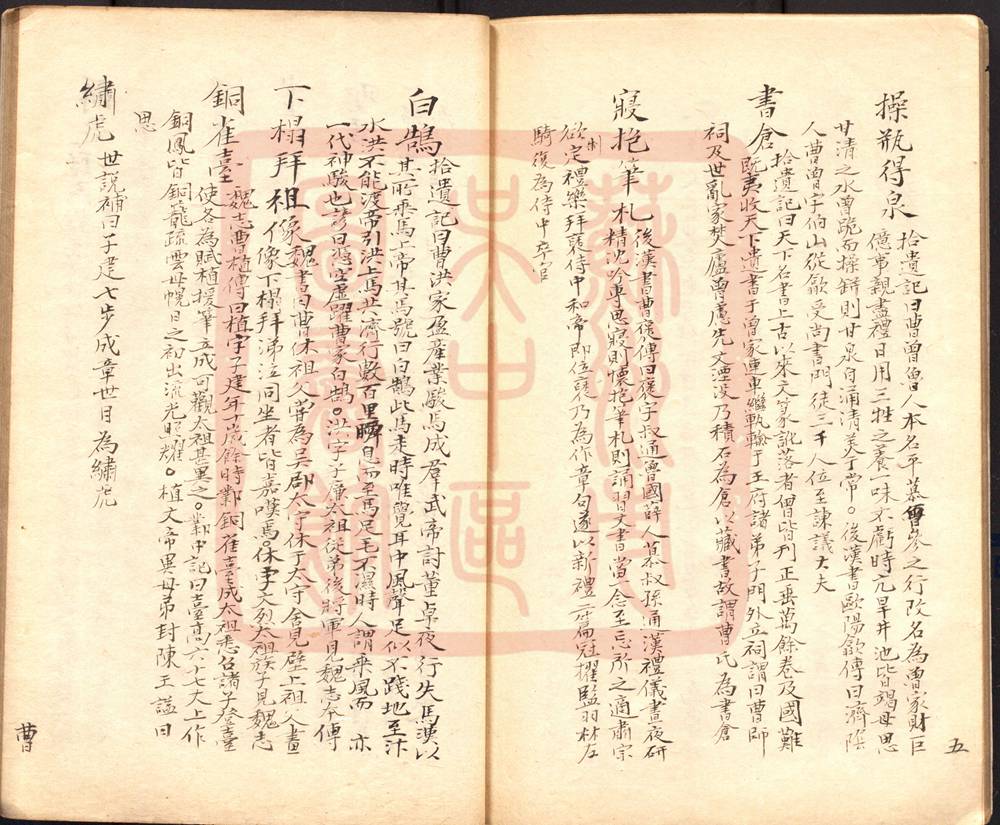 操瓶得泉 拾遺記曰曹曾魯人本名平慕曾參之行改名為曹家財巨
億事親盡禮日用三牲之養一味不虧時亢旱井池皆竭母思
甘清之水曾跪而操瓶則甘泉自涌清美于常。後漢書歐陽歙傳曰濟陰
人曹曾字伯山從歙受尚書門徒三千人位至諫議大夫
書倉 拾遺記曰天下名書上古以來文篆訛落者曾皆刊正垂萬餘卷及國難
既夷收天下遺書于曾家連車繼軌輸于王府諸弟子門外立祠謂曰曹師
祠及世亂家焚廬曾慮先文湮没乃積石為倉以藏書故謂曹氏為書倉
寢抱筆札 後漢書曹襃傳曰襃字叔通魯國薛人慕叔孫通漢禮儀晝夜研
精沈吟專思寢則懷抱筆札則誦習文書當念至忘所之適肅宗
欲制定禮樂拜襃侍中和帝即位襃乃為作章句遂以新禮二篇冠擢監羽林左
騎復為侍中卒官
白鵠 拾遺記曰曹洪家盈產業駿馬成羣武帝討董卓夜行失馬洪以
其所乘馬上帝其馬號曰白鵠此馬走時唯覺耳中風聲足似不踐地至汴
水洪不能渡帝引洪上馬共濟行數百里瞬息而至馬足毛不濕時人謂乘風而 亦
一代神駿也諺曰憑空虛躍曹家白鵠。洪字子廉太祖從弟後將軍見魏志本傳
下榻拜祖像 魏書曰曹休祖父嘗為吳郡太守休于太守舍見壁上祖父畫
像下榻拜涕泣同坐者皆嘉嘆焉。休字文烈太祖族子見魏志
銅雀臺 魏志曹植傳曰植字子建年十歲餘時鄴銅雀臺成太祖悉召諸子登臺
使各為賦植援筆立成可觀太祖甚異之。鄴中記曰臺高六七丈上作
銅鳳皆銅龍疏雲母幌日之初出流光照耀。植文帝異母弟封陳王謚曰
思
繡虎 世說補曰子建七步成章世目為繡虎
曹
五